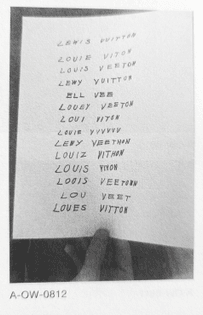 LEWIS VUITTON
LOUIE VITON
LOUIS VEETON
LEWY VUITTON
ELL VEE
LOUEY VEETON
LOUI VITON
LOUIE VVVVVV
LEWY VEETHON
LOUIZ VITHON
LOUIS VIXON
LOOIS VEETOWN
LOU VEET
LOUES VITTON
A-OW-0812